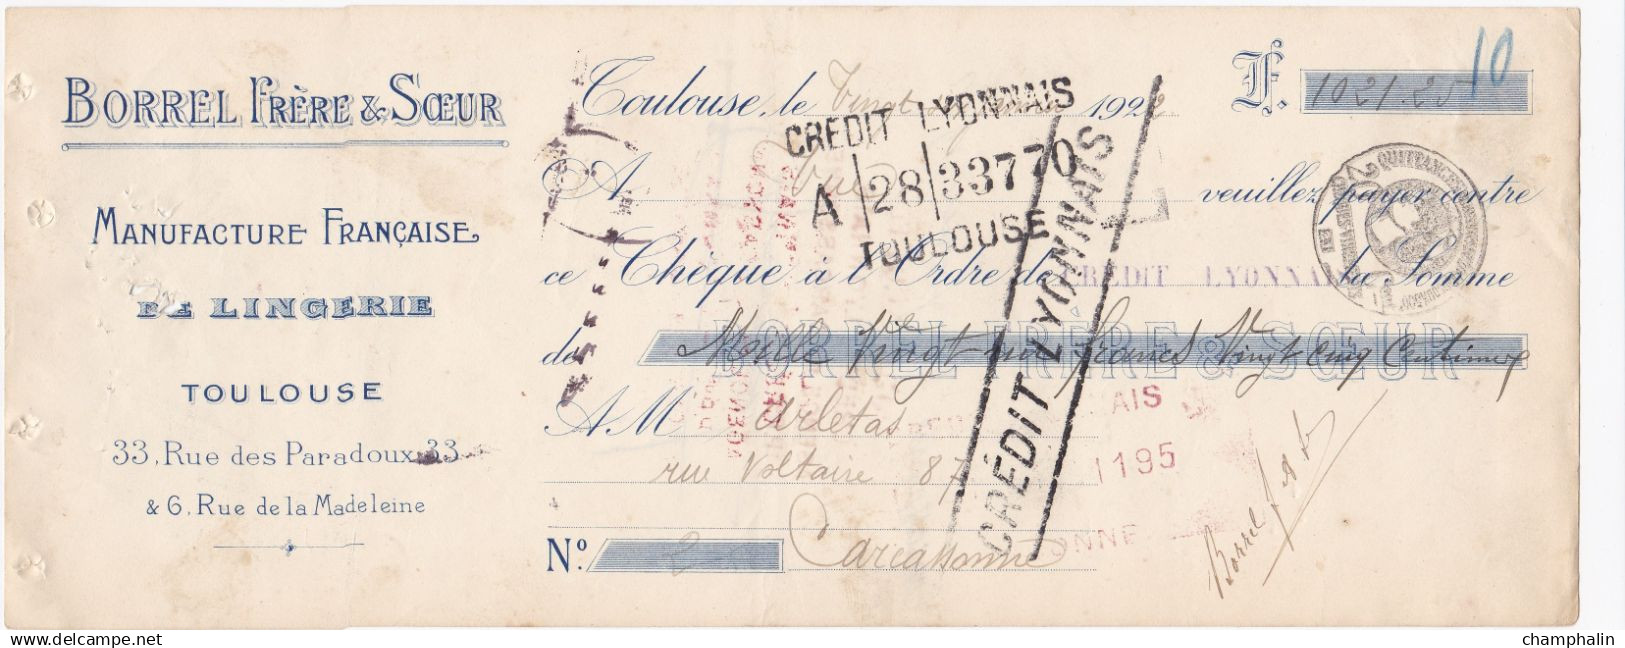 BORREL FRÈRE & SŒUR
MANUFACTURE FRANÇAISE
DE LINGERIE
TOULOUSE
33, Rue des Paradoux, 33
& 6, Rue de la Madeleine
10
Toulouse, le Vingt 1922 F. 1021.25
CREDIT LYONNAIS
A 28 33770
TOULOUSE
CRÉDIT LYONNAIS
A Vue veuillez payer contre
ce Chèque à l'Ordre de CRÉDIT LYONNAIS la Somme
de Mille Vingt un francs Vingt cinq Centimes
BORREL FRÈRE & SŒUR
A M Arletas
AIS
rue Voltaire 87
1195
Carcassonne
ONNE
Nº 2
Borrel
delcampe.net
champhalin